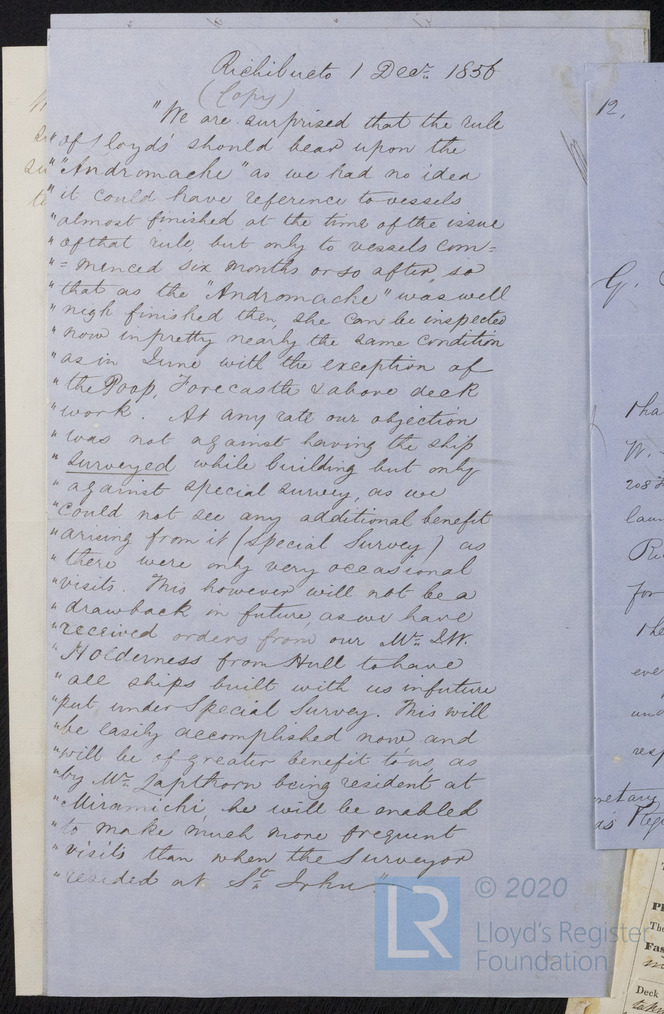 Richibucto 1 Decr. 1856
(Copy)
"We are surprised that the rule
" of Lloyds' should bear upon the
" "Andromache" as we had no idea
" it could have reference to vessels
" almost finished at the time of the issue
" of that rule, but only to vessels com=
" = menced six months or so after, so
" that as the "Andromache" was well
" nigh finished then, she can be inspected
" now in pretty nearly the same condition
" as in June with the exception of
" the Poop, Forecastle & above deck
" work. At any rate our objection
" was not against having the ship
" surveyed while building but only
" against special survey, as we
" could not see any additional benefit
" arising from it (Special Survey) as
" there were only very occasional
" visits. This however will not be a
" drawback in future, as we have
" received orders from our Mr. I.W.
" Holderness from Hull to have
" all ships built with us in future
" put under Special Survey. This will
" be easily accomplished now and
" will be of greater benefit to us, as
" by Mr. Lapthorn being resident at
" Miramichi he will be enabled
" to make much more frequent
" visits than when the Surveyor
" resided at St. John"
12,
G.
I ha
W.
208
lau
for
the
eve
and
resp
© 2020
LR
Lloyd's Register
Foundation
Fas
Deck